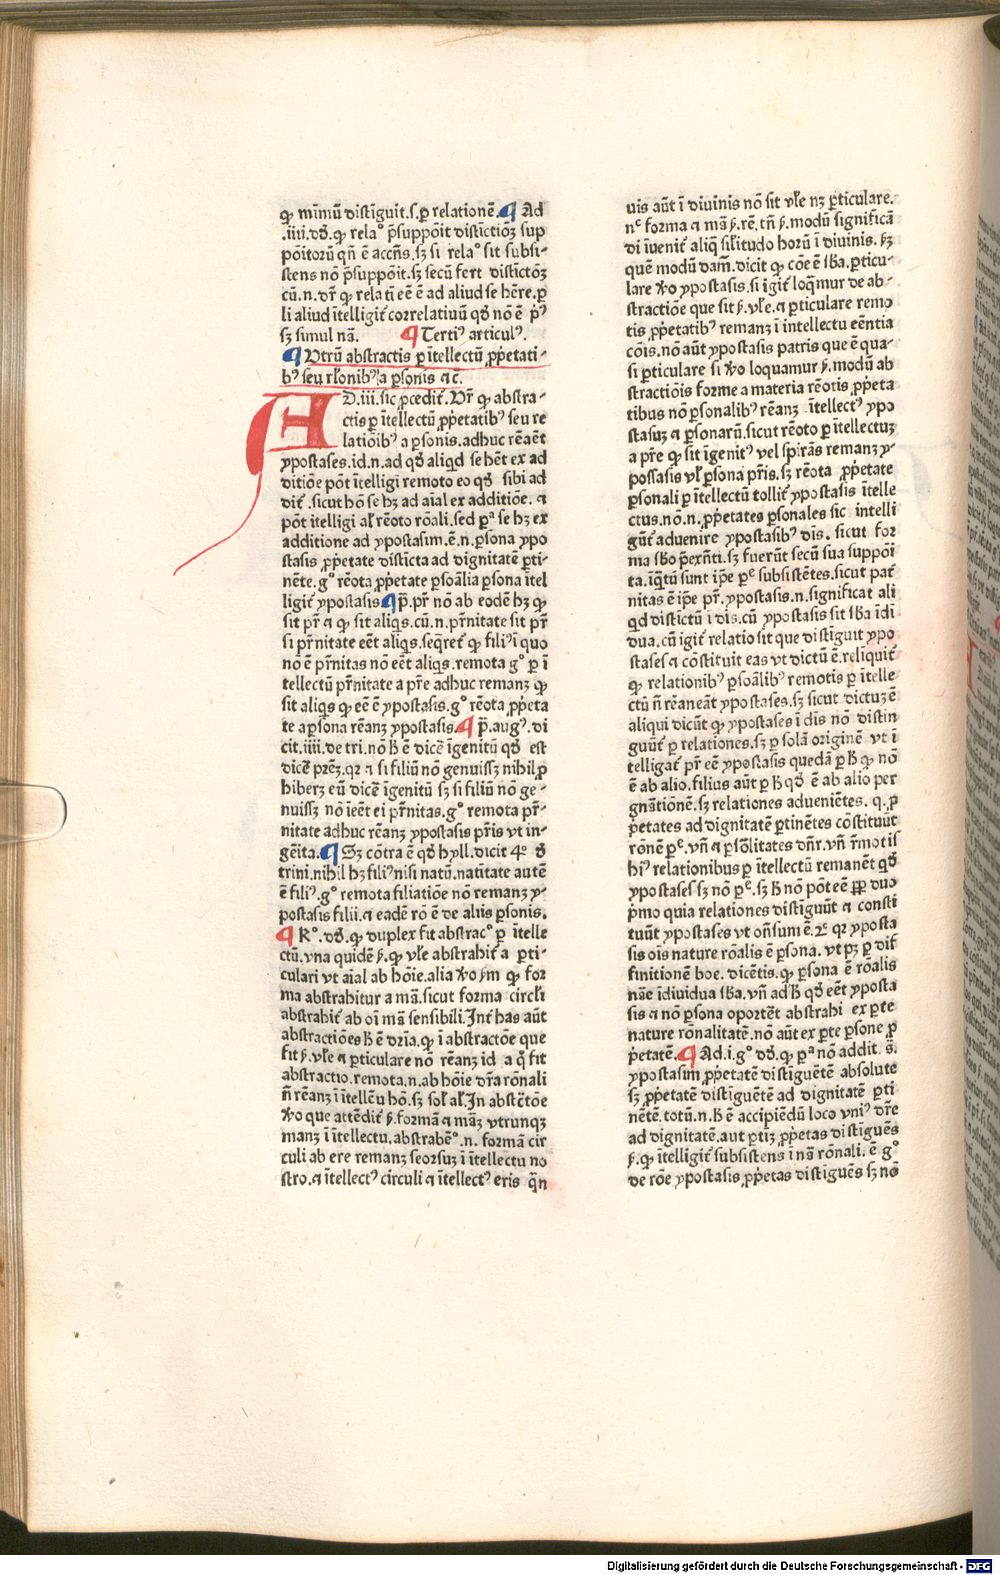 ꝙ mīmū distīguit.s.ꝑ relationē. ¶ Ad
.iiii.dð.ꝙ relaº p̄suppōit distictiōꝫ sup
pōitorū qñ ē accñs.sꝫ si relaº sit subsi-
stens nō p̄suppōit.sꝫ secū fert distictōꝫ
cū.n.dr̄ ꝙ relati eē ē ad aliud se hēre.ꝑ
li aliud ītelligit̄ correlatiuū qð nō ē pꝰ
sꝫ simul nā. ¶ Tertiꝰ articulꝰ.
¶ Utrū abstractis ꝑ ītellectū ꝓpetati-
bꝰ seu rl̄onibꝰ a ꝑsonis ⁊c̄.
AD.iii.sic ꝓcedit̄.Ur̄ ꝙ abstra-
ctis ꝑ ītellectū ꝓpetatibꝰ seu re
latōibꝰ a ꝑsonis.adhuc rēaēt
ypostases.id.n.ad qð aliqd se hēt ex ad
ditiōe pōt ītelligi remoto eo qð sibi ad
dit̄.sicut hō se hꝫ ad aīal ex additiōe.⁊
pōt ītelligi al̄ rēoto rōali.sed ꝑᵃ se hꝫ ex
additione ad ypostasim.ē.n.ꝑsona ypo
stasis ꝓpetate disticta ad dignitatē ꝑti-
nēte.gº rēota ꝓpetate ꝑsōalia ꝑsona ītel
ligit̄ ypostasis ¶ p̄.pr̄ nō ab eodē hꝫ ꝙ
sit pr̄ ⁊ ꝙ sit aliqs.cū.n.pr̄nitate sit pr̄
si pr̄nitate eēt aliqs.seqret̄ ꝙ filiꝰ ī quo
nō ē pr̄nitas nō eēt aliqs.remota gº ꝑ ī
tellectū pr̄nitate a pr̄e adhuc remanꝫ ꝙ
sit aliqs ꝙ eē ē ypostasis.gº rēota ꝓpeta
te a ꝑsona rēanꝫ ypostasis. ¶ p̄.augꝰ.di
cit.iiii.de tri.nō ħ ē dicē īgenitū qð est
dicē prēꝫ.qꝛ ⁊ si filiū nō genuissꝫ nihil ꝓ
hiberꝫ eū dicē īgenitū sꝫ si filiū nō ge-
nuissꝫ nō īeēt ei pr̄nitas.gº remota pr̄-
nitate adhuc rēanꝫ ypostasis pr̄is vt in-
gēita. ¶ Sꝫ cōtra ē qð hyll.dicit 4º ð
trini.nihil hꝫ filiꝰ nisi natū.natiuitate autē
ē filiꝰ.gº remota filiatiōe nō remanꝫ y-
postasis filii.⁊ eadē rō ē de aliis ꝑsonis.
¶ Rº.dð.ꝙ duplex fit abstracº ꝑ ītelle
ctū.vna quidē ẜ.ꝙ vl̄e abstrahit̄ a ꝑti-
culari vt aīal ab hōie.alia v̄o ẜm ꝙ for
ma abstrahitur a mā.sicut forma circl̄i
abstrahit̄ ab oī mā sensibili.Int̄ has aūt
abstractiōes ħ ē dr̄ia.ꝙ ī abstractōe que
fit ẜ.vl̄e ⁊ ꝑticulare nō rēanꝫ id a q̊ fit
abstractio.remota.n.ab hōie dr̄a rōnali
n̄ rēanꝫ ī ītellēu hō.sꝫ sol̄ al̄.In abstc̄tōe
v̄o que attēdit̄ ẜ.formā ⁊ māꝫ vtrunqꝫ
manꝫ ī ītellectu.abstrahēᵒ.n.formā cir
culi ab ere remanꝫ seorsuꝫ ī ītellectu no
stro.⁊ ītellectꝰ circuli ⁊ ītellectꝰ eris qn̄
uis aūt ī diuinis nō sit vl̄e nꝫ ꝑticulare.
nᶜ forma ⁊ mā ẜ.rē.tn̄ ẜ.modū significā
di īuenit̄ aliq̄ sil̄itudo horū ī diuinis.ẜꝫ
quē modū dam̄.dicit ꝙ cōe ē sb̄a.ꝑticu-
lare v̄o ypostasis.si igit̄ loq̄mur de ab-
stractiōe que sit ẜ.vl̄e.⁊ ꝑticulare remo
tis ꝓpetatibꝰ remanꝫ ī intellectu eēntia
cōis.nō aūt ypostasis patris que ē qua-
si ꝑticulare si v̄o loquamur ẜ.modū ab
stractiōis forme a materia rēotis ꝓpeta
tibus nō ꝑsonalibꝰ rēanꝫ ītellectꝰ ypo
stasuꝫ ⁊ ꝑsonarū.sicut rēoto ꝑ ītellectuꝫ
a pr̄e ꝙ sit īgenitꝰ vel spirās remanꝫ y-
postasis vl̄ ꝑsona pr̄is.sꝫ rēota ꝓpetate
ꝑsonali ꝑ ītellectū tollit̄ ypostasis ītelle
ctus.nō.n.ꝓpetates ꝑsonales sic intelli
gūt̄ aduenire ypostasibꝰ dīs. sicut for
ma sb̄o p̄exn̄ti.sꝫ fuerūt secū sua suppōi
ta.īq̄tū sunt ip̄e ꝑᵉ subsistētes.sicut pat̄
nitas ē ip̄e pr̄.ypostasis.n.significat ali
qd distīctū ī dīs.cū ypostasis sit sb̄a īdi
dua.cū igit̄ relatio sit que distīguit ypo
stases ⁊ cōstituit eas vt dictū ē.reliquit̄
ꝙ relationibꝰ ꝑsōalibꝰ remotis ꝑ ītelle
ctū n̄ rēaneāt ypostases.sꝫ sicut dictuꝫ ē
aliqui dicūt ꝙ ypostases ī dīs nō distin
guūt̄ ꝑ relationes.sꝫ ꝑ solā originē vt ī
telligat̄ pr̄ eē ypostasis quedā ꝑ ħ ꝙ nō
ē ab alio.filius aūt ꝑ ħ qð ē ab alio per
gnātionē.sꝫ relationes adueniētes. q.ꝓ
petates ad dignitatē ꝑtinētes cōstituūt
rōnē ꝑᵉ.vn̄ ⁊ ꝑsōlitates dn̄r.vn̄ r̄motis
hiꝰ relationibus ꝑ ītellectū remanēt qð
ypostases sꝫ nō ꝑᵉ.sꝫ ħ nō pōt eē ꝓꝑ duo
p̄mo quia relationes distīguūt ⁊ consti
tuūt ypostases vt on̄sum ē.2º qꝛ yposta
sis oīs nature rōalis ē ꝑsona. vt pꝫ ꝑ dif
finitionē boe. dicētis.ꝙ ꝑsona ē rōalis
nāe īdiuidua sb̄a.vn̄ ad ħ qð eēt yposta
sis ⁊ nō ꝑsona oportēt abstrahi ex ꝑte
nature rōnalitatē.nō aūt ex ꝑte ꝑsone ꝓ
petatē. ¶ Ad.i.gº dð.ꝙ ꝑᵃ nō addit. s̄.
ypostasim ꝓpetatē distīguētē absolute
sꝫ ꝓpetatē distīguētē ad dignitatē ꝑti
nētē.totū.n.ħ ē accipiēdū loco vniꝰ dr̄e
ad dignitatē.aut ꝑtiꝫ ꝓpetas distīguēs
ẜ.ꝙ ītelligit̄ subsistens ī nā rōnali. ē gº
de rōe ypostasis ꝓpetas distīguēs sꝫ nō
Digitalisierung gefördert durch die Deutsche Forschungsgemeinschaft - DFG